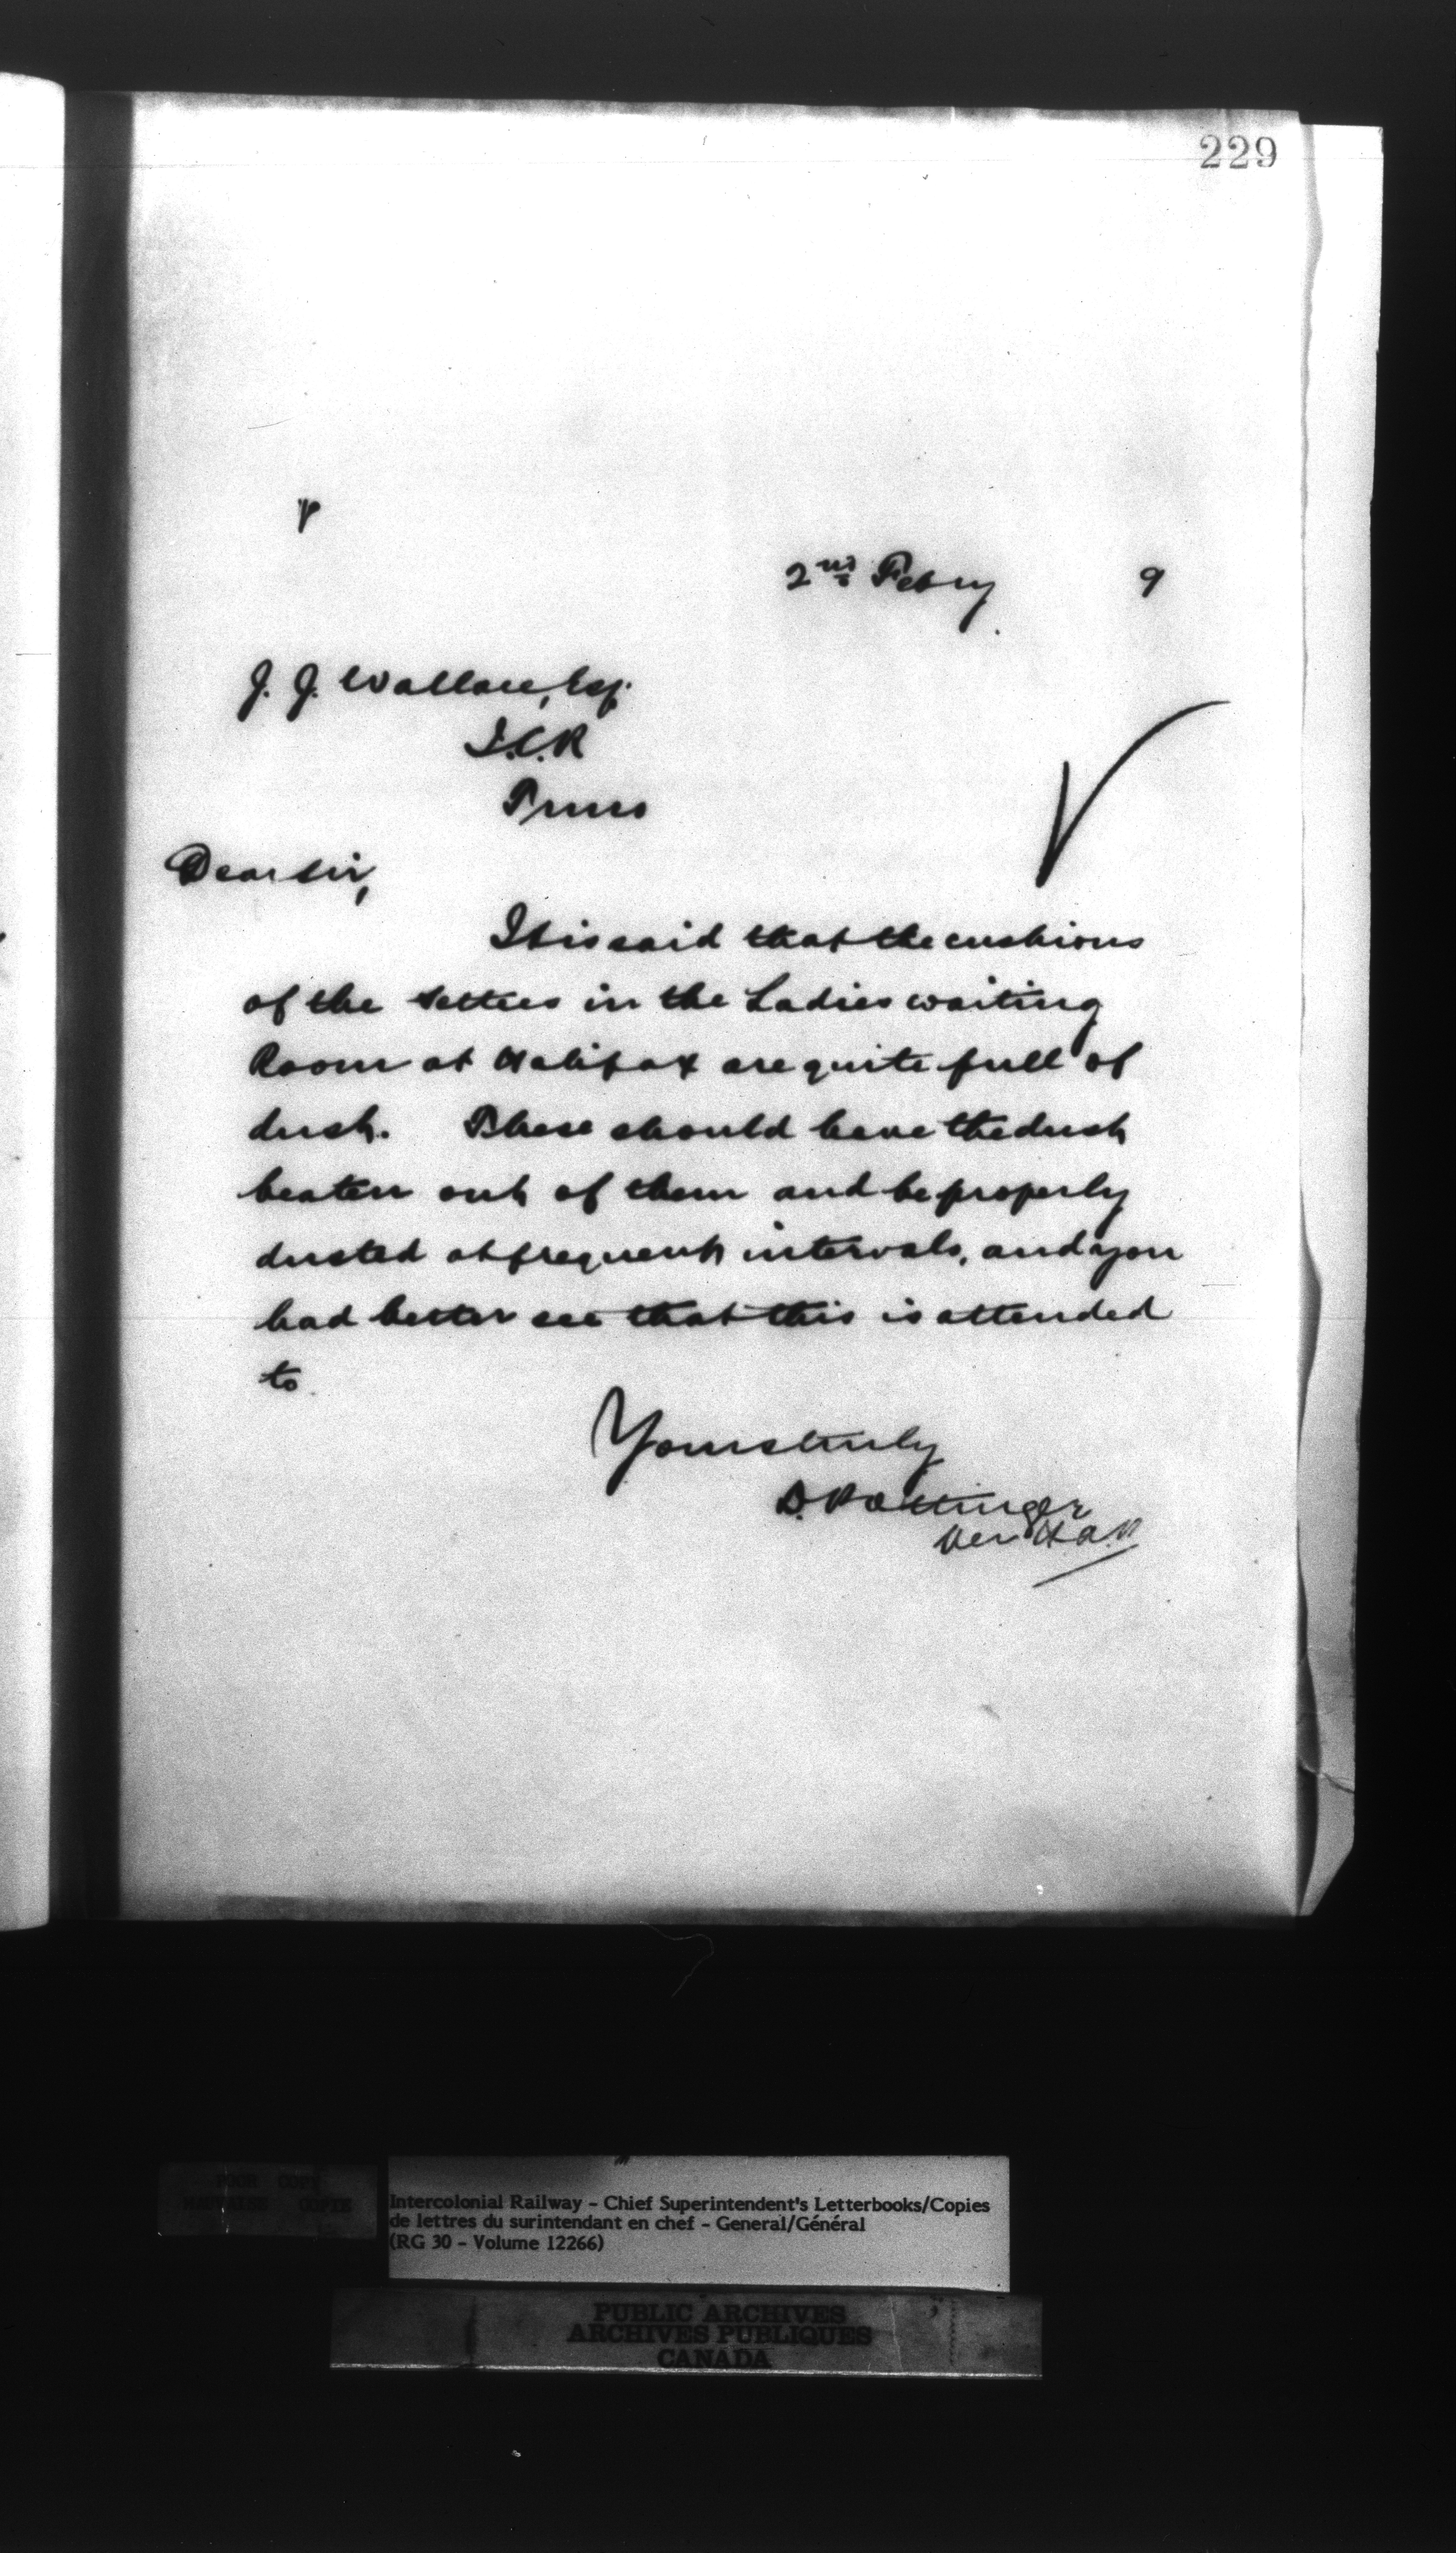 229
2nd Febry 9
J. J. Wallace, Esq.
I.C.R
Truro
Dear Sir,
It is said that the cushions
of the settees in the Ladies waiting
Room at Halifax are quite full of
dust. These should have the dust
beaten out of them and be properly
dusted at frequent intervals, and you
had better see that this is attended
to.
Yours truly
D. Pottinger
Per
POOR COPY
MAUVAISE COPIE
Intercolonial Railway - Chief Superintendent's Letterbooks/Copies
de lettres du surintendant en chef - General/Général
(RG 30 - Volume 12266)
PUBLIC ARCHIVES
ARCHIVES PUBLIQUES
CANADA